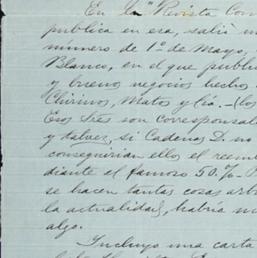 En la "Revista Com
publica en esa, salió un
número de 1º de Mayo,
Blanco, en el que publi
y buenos negocios hechos
Chirinos, Matos y Cía. (los
Esos tres son corresponsal
y talvez, si Cadenas D. no
conseguirían ellos el reem
diante el famoso 50.%.
se hacen tantas cosas arb
la actualidad, habría
algo.
Incluyo una carta